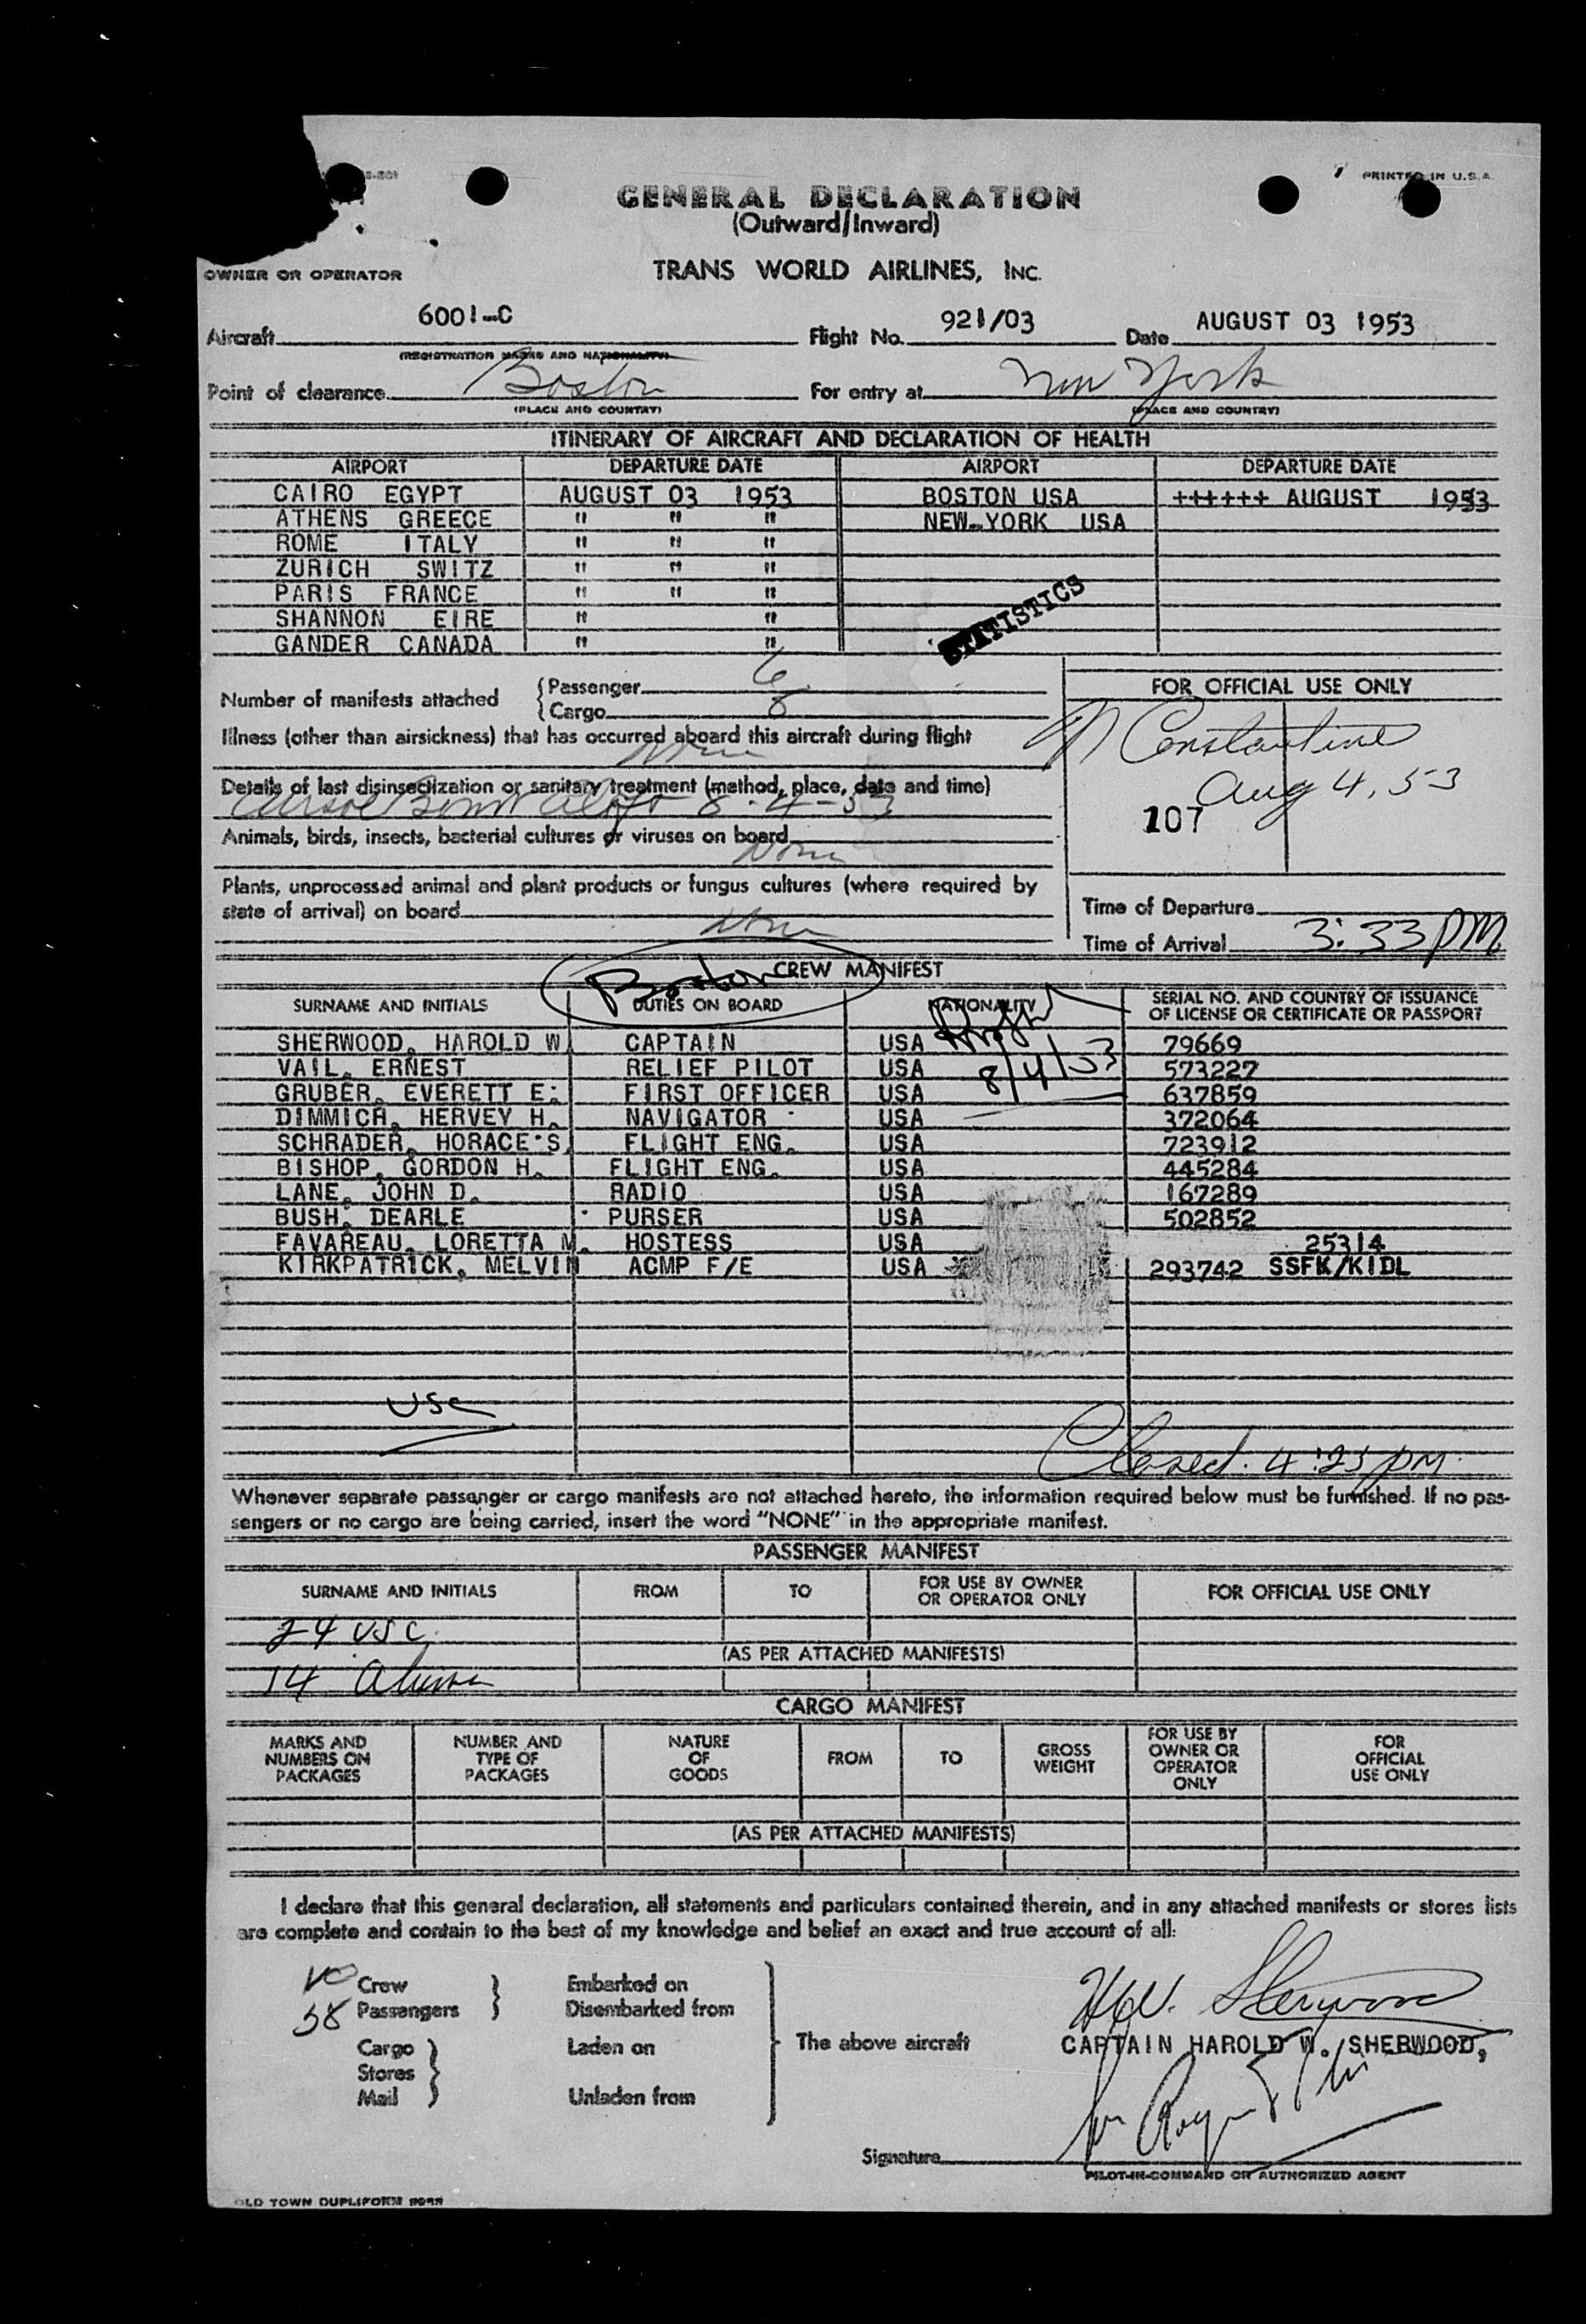 PRINTED IN U.S.A.
GENERAL DECLARATION
(Outward/Inward)
OWNER OR OPERATOR TRANS WORLD AIRLINES, INC.
Aircraft 6001-C Flight No. 921/03 Date AUGUST 03 1953
(REGISTRATION MARKS AND NATIONALITY)
Point of clearance Boston For entry at New York
(PLACE AND COUNTRY) (PLACE AND COUNTRY)
ITINERARY OF AIRCRAFT AND DECLARATION OF HEALTH
AIRPORT DEPARTURE DATE AIRPORT DEPARTURE DATE
CAIRO EGYPT AUGUST 03 1953 BOSTON USA ++++++ AUGUST 1953
ATHENS GREECE " " " NEW YORK USA
ROME ITALY " " "
ZURICH SWITZ " " "
PARIS FRANCE " " "
SHANNON EIRE " "
GANDER CANADA " "
STATISTICS
Number of manifests attached { Passenger 6
{ Cargo 8
FOR OFFICIAL USE ONLY
Illness (other than airsickness) that has occurred aboard this aircraft during flight
None
Constantine
Aug 4, 53
107
Details of last disinsectization or sanitary treatment (method, place, date and time)
Aersol Bomb Aloft 8-4-53
Animals, birds, insects, bacterial cultures or viruses on board
None
Plants, unprocessed animal and plant products or fungus cultures (where required by
state of arrival) on board
None
Time of Departure
Time of Arrival 3:33 PM
Boston
CREW MANIFEST
SURNAME AND INITIALS DUTIES ON BOARD NATIONALITY SERIAL NO. AND COUNTRY OF ISSUANCE
OF LICENSE OR CERTIFICATE OR PASSPORT
SHERWOOD, HAROLD W. CAPTAIN USA 79669
VAIL, ERNEST RELIEF PILOT USA 8/4/53 573227
GRUBER, EVERETT E. FIRST OFFICER USA 637859
DIMMICH, HERVEY H. NAVIGATOR USA 372064
SCHRADER, HORACE S. FLIGHT ENG. USA 723912
BISHOP, GORDON H. FLIGHT ENG. USA 445284
LANE, JOHN D. RADIO USA 167289
BUSH, DEARLE PURSER USA 502852
FAVAREAU, LORETTA M. HOSTESS USA 25314
KIRKPATRICK, MELVIN ACMP F/E USA 293742 SSFK/KIDL
USC
Closed 4:25 PM
Whenever separate passenger or cargo manifests are not attached hereto, the information required below must be furnished. If no pas-
sengers or no cargo are being carried, insert the word "NONE" in the appropriate manifest.
PASSENGER MANIFEST
SURNAME AND INITIALS FROM TO FOR USE BY OWNER OR OPERATOR ONLY FOR OFFICIAL USE ONLY
24 USC
(AS PER ATTACHED MANIFESTS)
14 Aliens
CARGO MANIFEST
MARKS AND NUMBERS ON PACKAGES NUMBER AND TYPE OF PACKAGES NATURE OF GOODS FROM TO GROSS WEIGHT FOR USE BY OWNER OR OPERATOR ONLY FOR OFFICIAL USE ONLY
(AS PER ATTACHED MANIFESTS)
I declare that this general declaration, all statements and particulars contained therein, and in any attached manifests or stores lists
are complete and contain to the best of my knowledge and belief an exact and true account of all:
10 Crew Embarked on
38 Passengers Disembarked from
Cargo Laden on The above aircraft
Stores
Mail Unladen from
H.W. Sherwood
CAPTAIN HAROLD W. SHERWOOD,
Signature
PILOT-IN-COMMAND OR AUTHORIZED AGENT
OLD TOWN DUPLIFORM